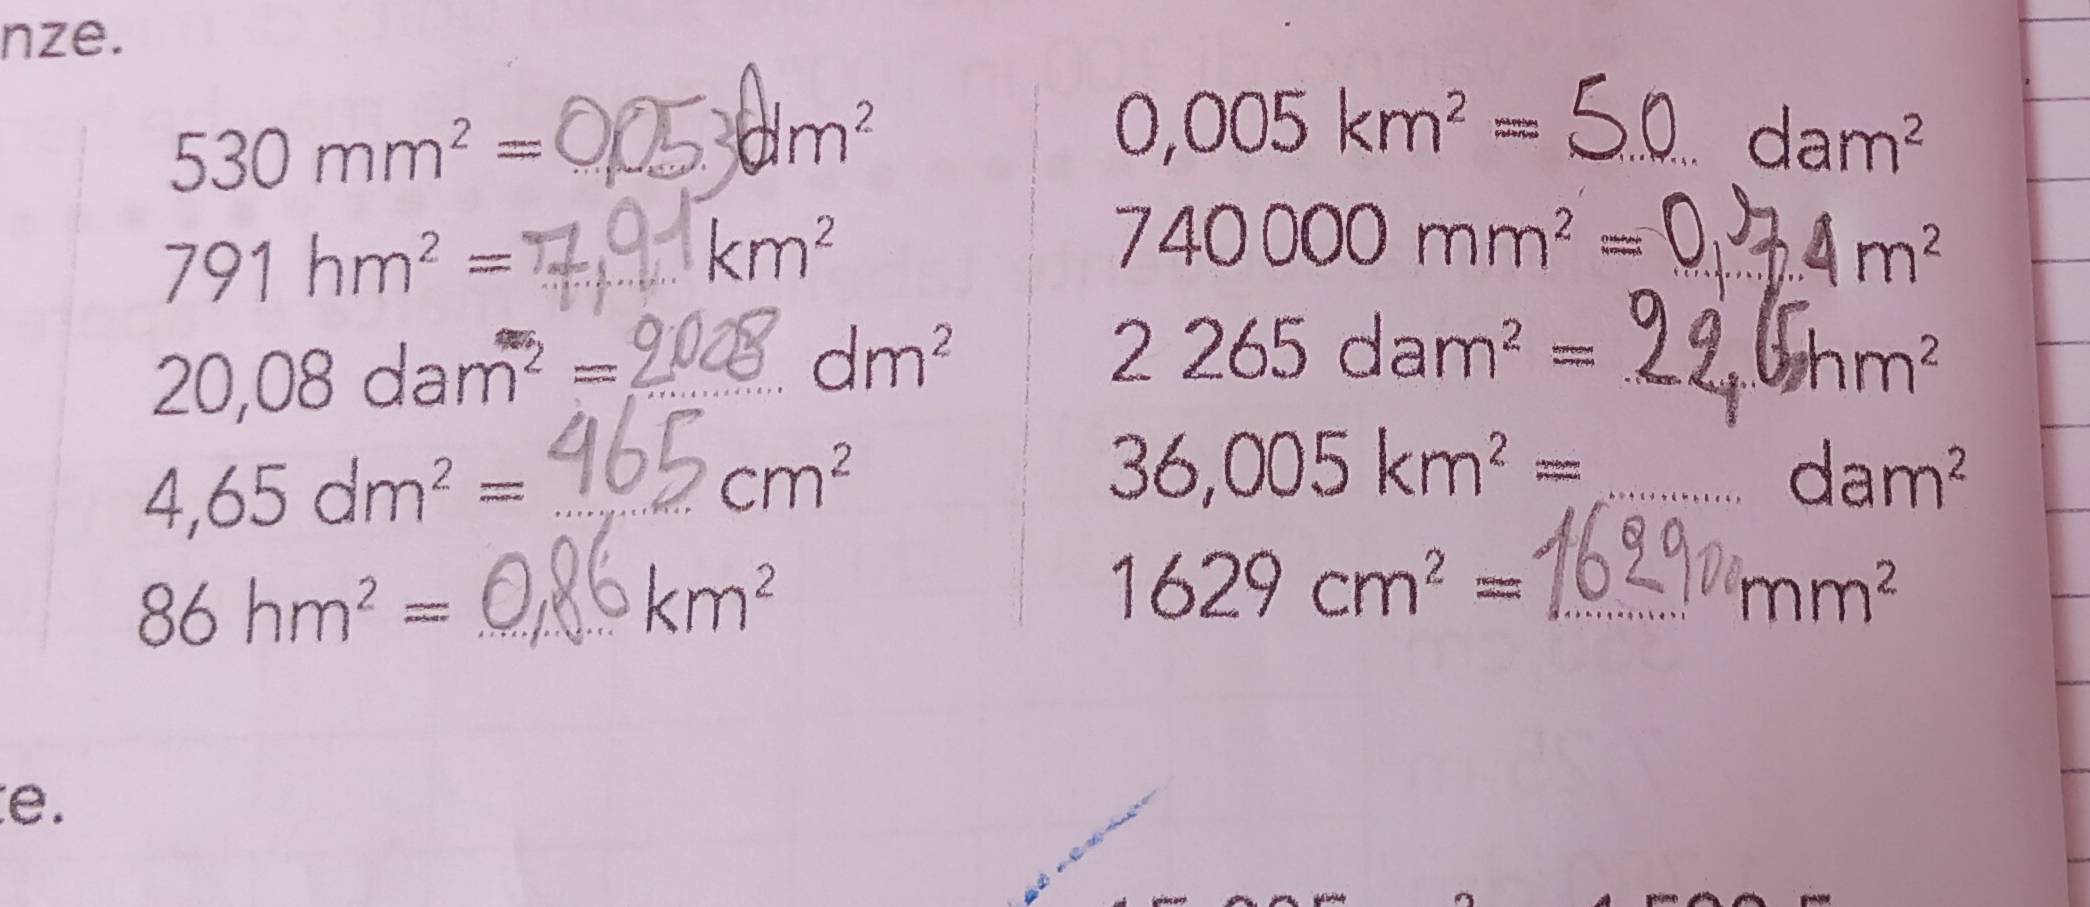 nze.
530 mm² = 0,0530 dm²
791 hm² = 7,91 km²
20,08 dam² = 2008 dm²
4,65 dm² = 465 cm²
86 hm² = 0,86 km²
0,005 km² = 50 dam²
740 000 mm² = 0,74 m²
2 265 dam² = 22,65 hm²
36,005 km² = ........ dam²
1629 cm² = 162900 mm²
e.